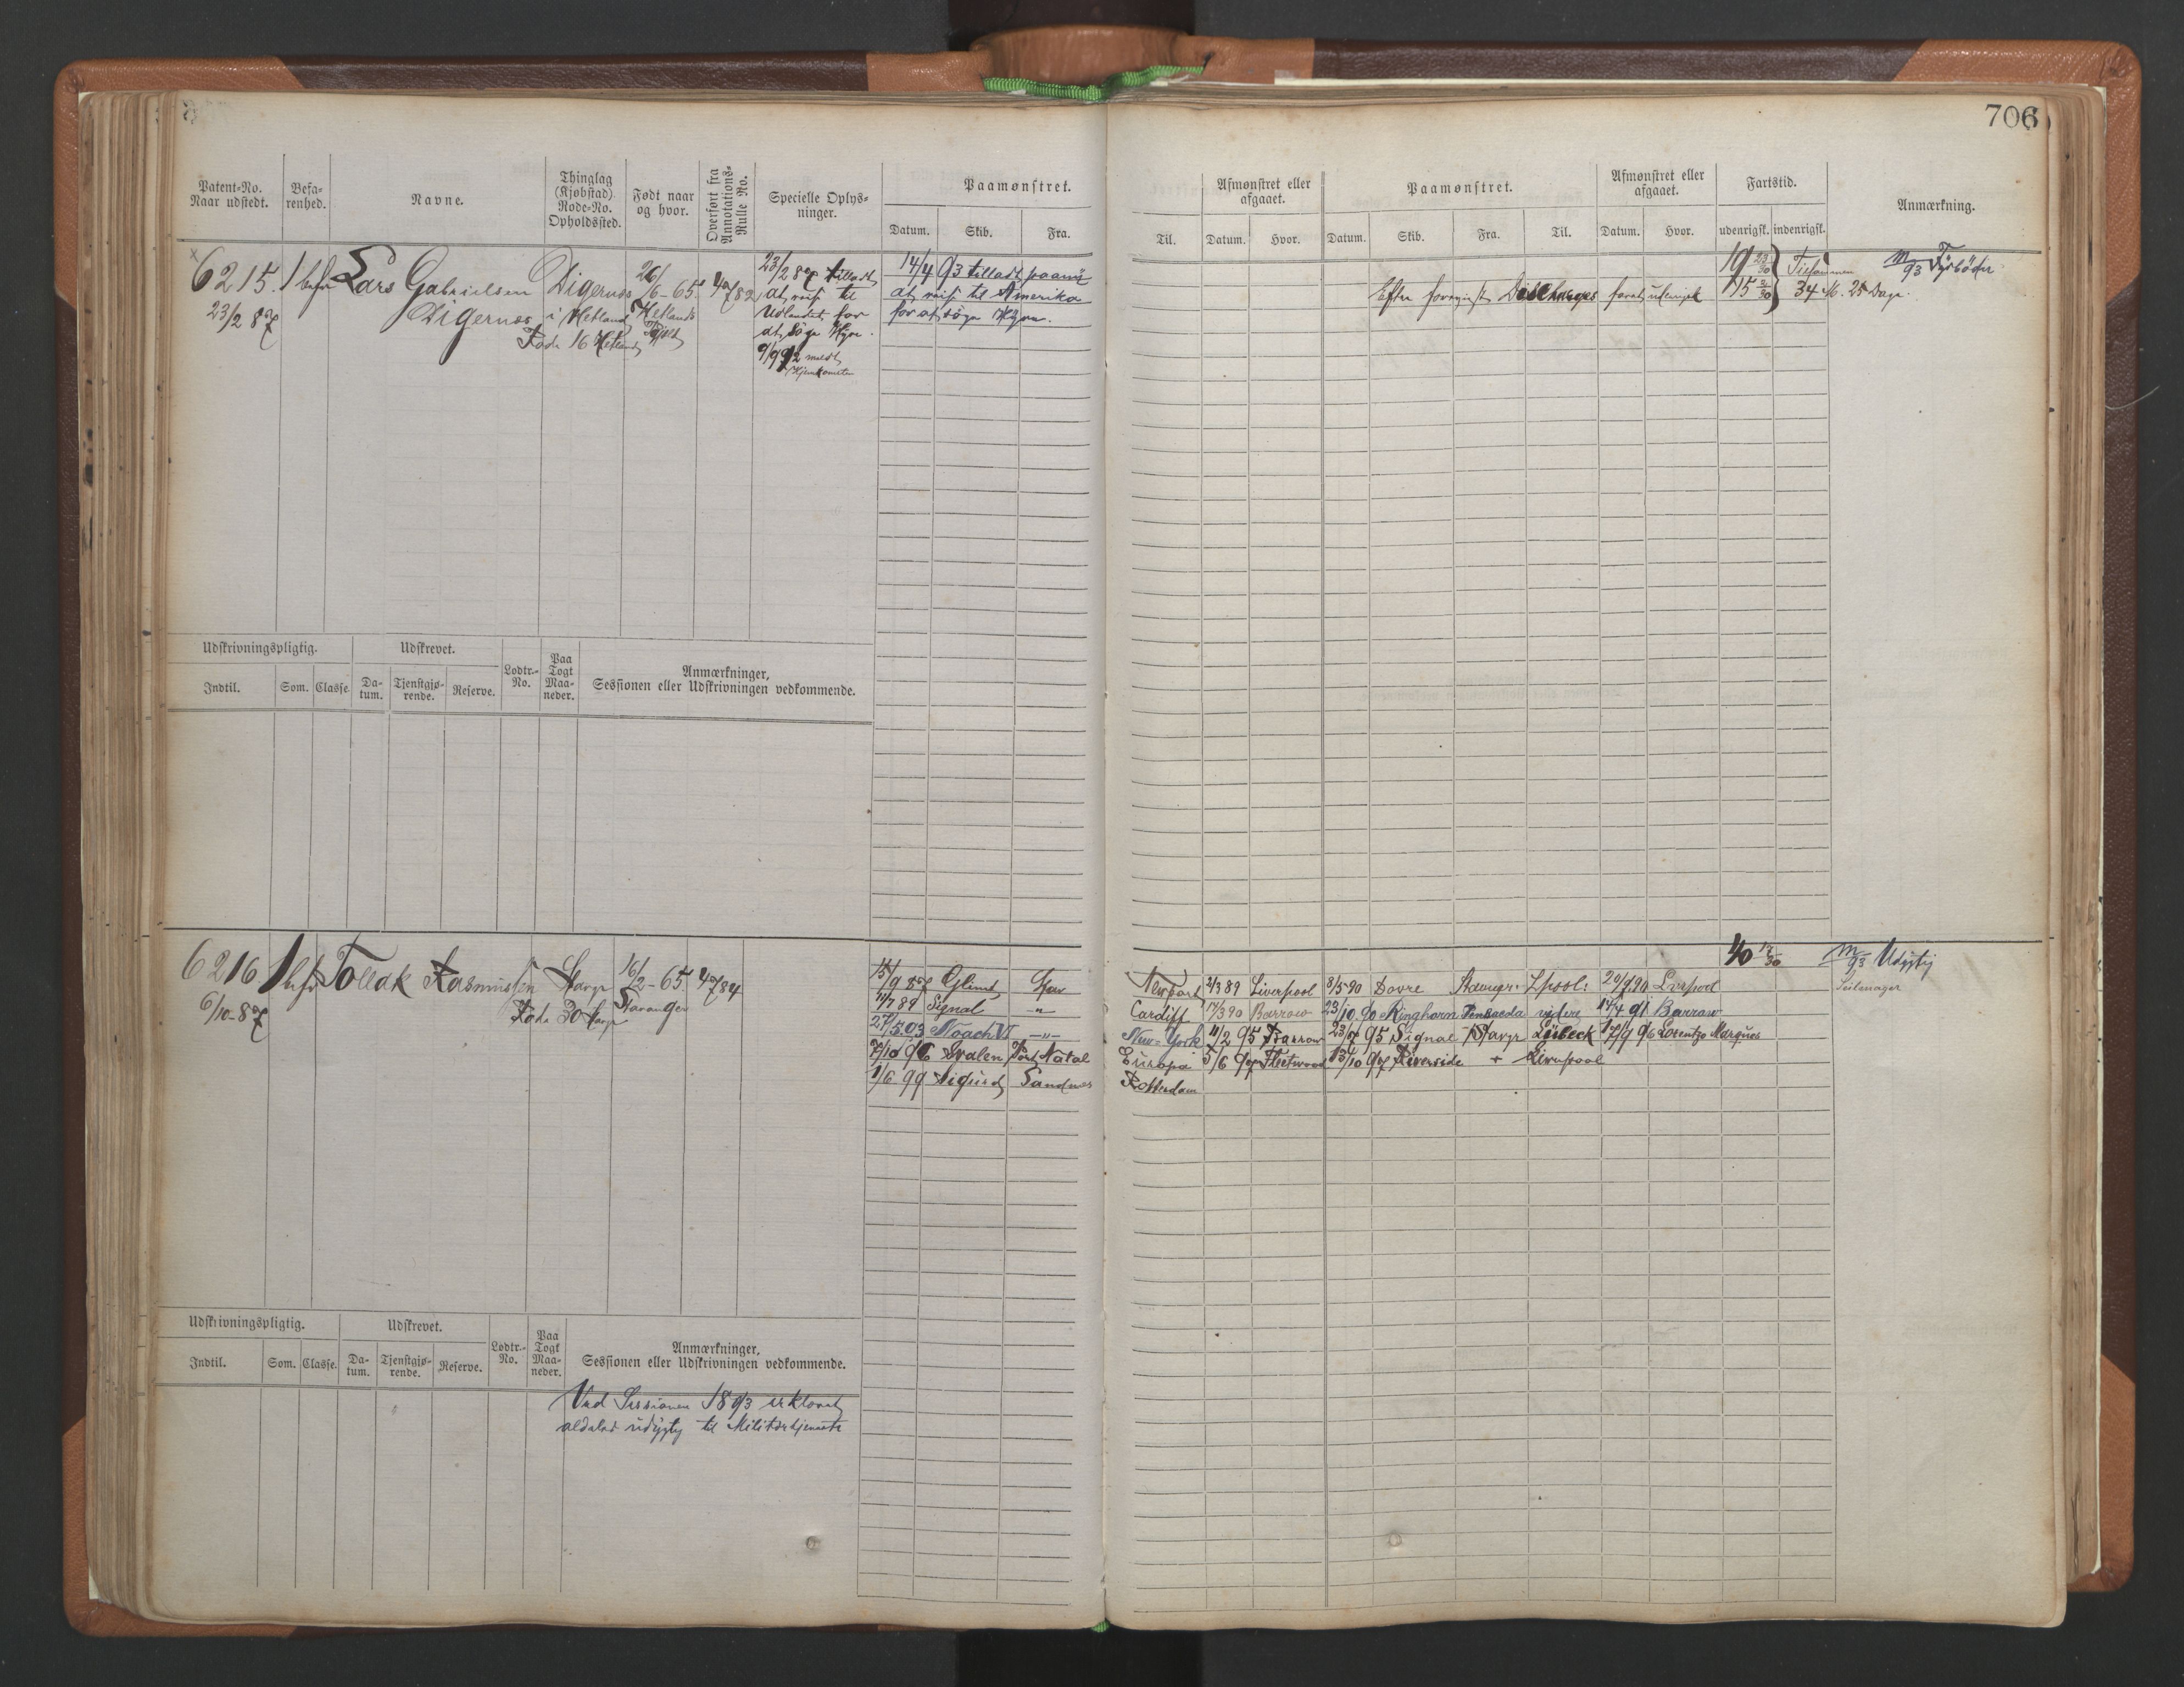 706
Patent-No. Naar udstedt.
Befarenhed.
Navne.
Thinglag (Kjøbstad) Rode-No. Opholdssted.
Født naar og hvor.
Overført fra Annotations-Rulle No.
Specielle Oplysninger.
Paamønstret.
Datum. Skib. Fra.
Til.
Afmønstret eller afgaaet.
Datum. Hvor.
Paamønstret.
Datum. Skib. Fra. Til.
Afmønstret eller afgaaet.
Datum. Hvor.
Fartstid.
udenrigsk. indenrigsk.
Anmærkning.
6215. 1 befr Lars Gabrielsen Digernes 26/6-65.
23/2 87 Digernes i Hetland Hetlands
Rode 16 Hetland
23/2 87 tilladt
at reise til
Udlandet for
at søge Hyre.
9/9 92 meldt
Hjemkomsten
14/4 93 tilladt paany
at reise til Amerika
for at søge Hyre.
Efter forevist Discharges faret udenrigsk
19 23/30 Tilsammen
15 2/30 34 M. 25 Dage.
M/93 Fyrbøder
Udskrivningspligtig.
Indtil. Som. Classe.
Udskrevet.
Datum. Tjenstgjørende. Reserve.
Lodtr.-No.
Paa Togt Maaneder.
Anmærkninger,
Sessionen eller Udskrivningen vedkommende.
6216 1 bfr Tollak Rasmussen Stavgr 16/2-65. 4784
6/10-87 Rode 30 Stavgr Stavanger
15/9 87 Glimt Stav Newport 2/3 89 Liverpool 8/5 90 Dovre Stavngr. Lpool. 20/7 90 Liverpool
11/7 89 Signal -"- Cardiff 17/3 90 Barrow 23/10 90 Ringhorn Pensacola videre 14/4 91 Barrow
27/5 93 Noach VI -"- New-York 11/2 95 Barrow 23/7 95 Signal Stavgr Lübeck 17/9 96 Lorentzo Marques
7/10 96 Svalen Port Natal Europa 5/6 97 Fleetwood 13/10 97 Riverside + Liverpool
1/6 99 Sigurd Sandnes Rotterdam
40 12/30
M/93 Udygtig
Seilmager
Udskrivningspligtig.
Indtil. Som. Classe.
Udskrevet.
Datum. Tjenstgjørende. Reserve.
Lodtr.-No.
Paa Togt Maaneder.
Anmærkninger,
Sessionen eller Udskrivningen vedkommende.
Ved Sessionen 1893 erklæret
aldeles udygtig til Militærtjeneste